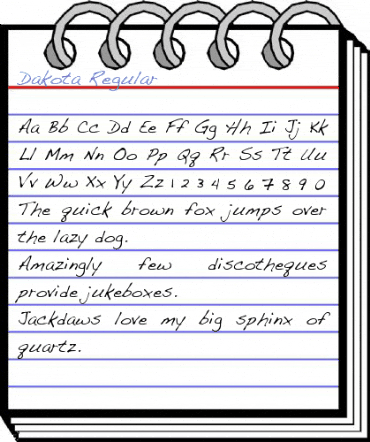 Dakota Regular
Aa Bb Cc Dd Ee Ff Gg Hh Ii Jj Kk
Ll Mm Nn Oo Pp Qq Rr Ss Tt Uu
Vv Ww Xx Yy Zz 1 2 3 4 5 6 7 8 9 0
The quick brown fox jumps over
the lazy dog.
Amazingly few discotheques
provide jukeboxes.
Jackdaws love my big sphinx of
quartz.